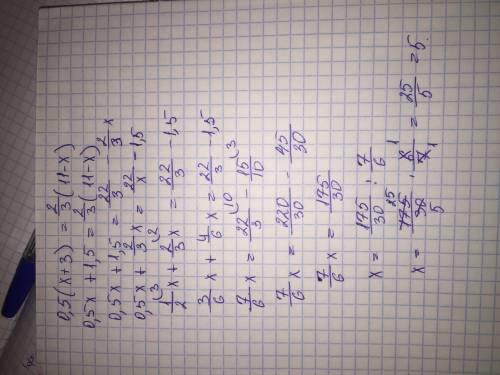 0,5(x+3) = 2/3(11-x)
0,5x+1,5 = 2/3(11-x)
0,5x+1,5 = 22/3 - 2/3x
0,5x + 2/3x = 22/x - 1,5
1/2x + 2/3x = 22/3 - 1,5
3/6x + 4/6x = 22/3 - 1,5
7/6x = 22/3 - 15/10
7/6x = 220/30 - 45/30
7/6x = 175/30
x = 175/30 : 7/6
x = 175/30 · 6/7 = 25/5 = 5.